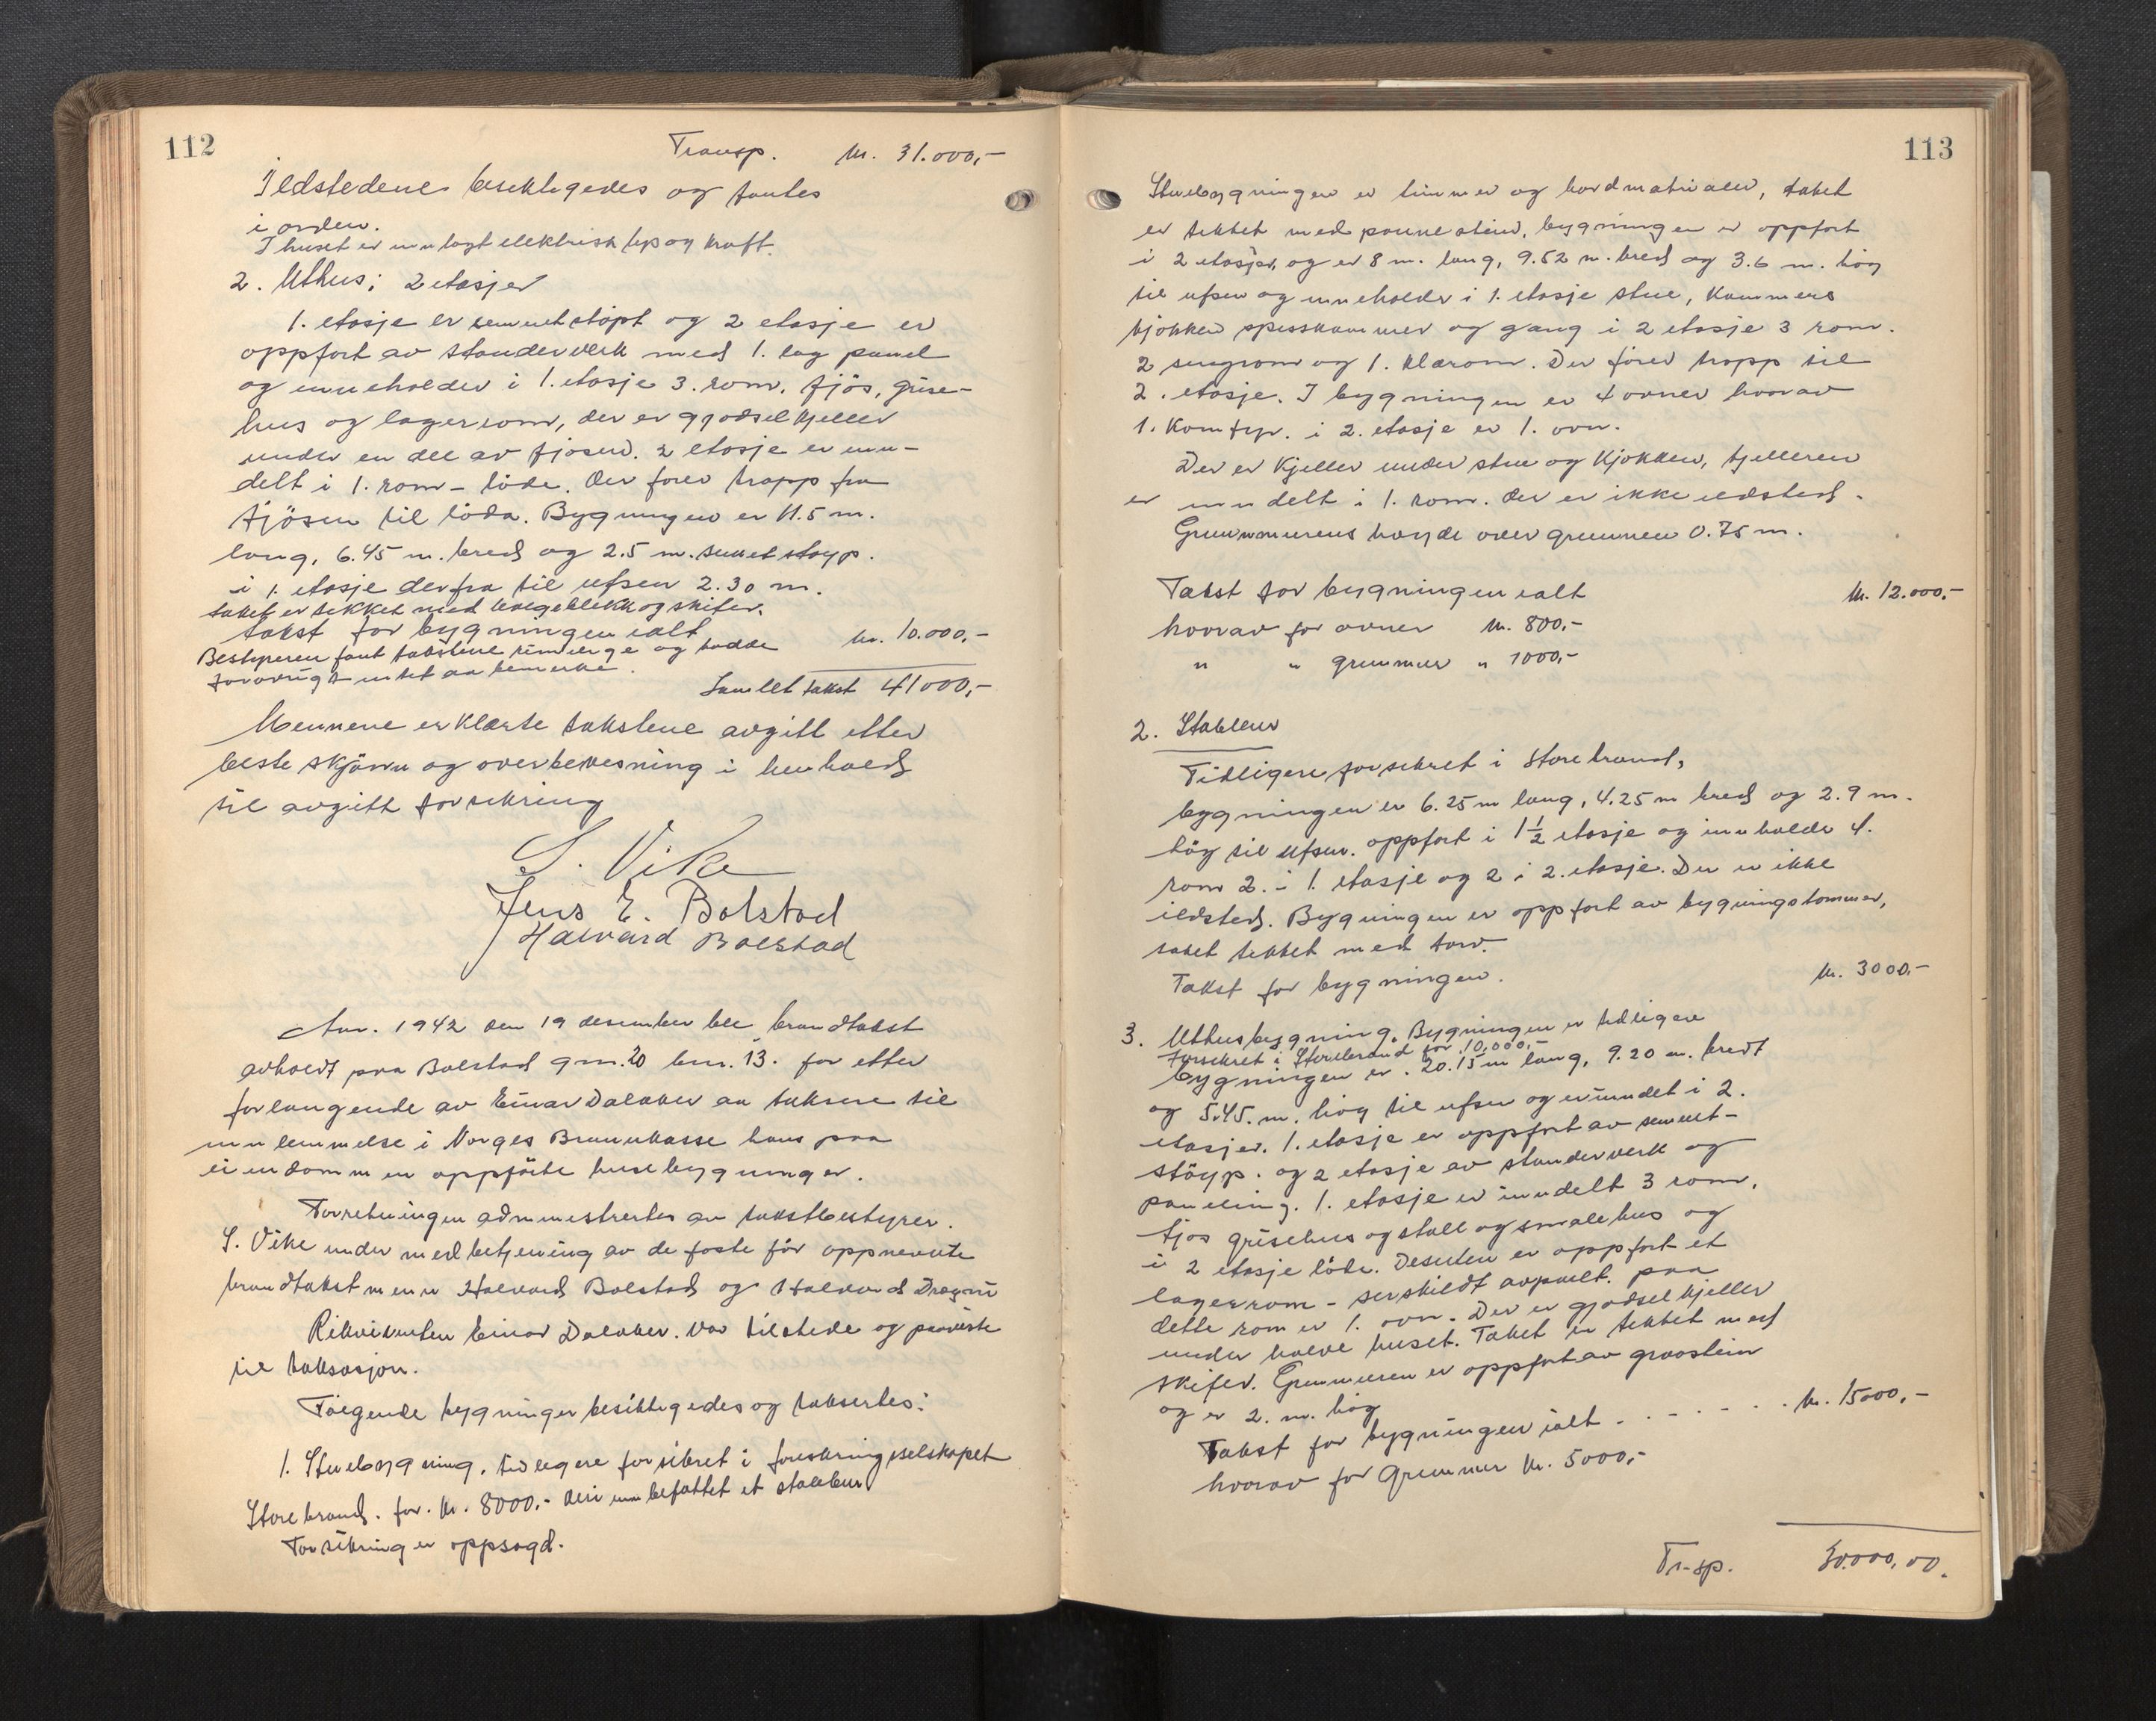 112
Transp. kr. 31.000,-
Ildstedene besiktigedes og fantes
i orden.
I huset er innlagt elektrisk lys og kraft.
2. Uthus; 2 etasjer
1. etasje er sementstøpt og 2 etasje er
oppfört av standerverk med 1. lag panel
og inneholder i 1. etasje 3. rom, fjös, grise-
hus og lagerrom, der er gjødselkjeller
under en del av fjøsen. 2 etasje er inn-
delt i 1. rom - löde. Der förer trapp fra
fjösen til löda. Bygningen er 11.5 m.
lang, 6.45 m. bred og 2.5 m. sementstøyp.
i 1. etasje derfra til ufsen 2.30 m.
taket er tekket med bølgeblekk og skifer.
takst for bygningen ialt kr. 10.000,-
Bestyreren fant takstene rimelige og hadde
forövrigt intet aa bemerke.
Samlet takst 41000,-
Mennene erklærte takstene avgitt etter
beste skjönn og overbevisning i henhold
til avgitt forsikring
S. Vike
Jens E. Bolstad
Halvard Bolstad
Aar. 1942 den 19 desember ble brandtakst
avholdt paa Bolstad gnr. 20 bnr. 13. for etter
forlangende av Einar Dalaker aa taksere til
innlemmelse i Norges Brannkasse hans paa
eiendommen oppförte husebygninger.
Forretningen administrertes av takstbestyrer.
S. Vike under medbetjening av de faste för oppnevnte
brandtakstmenn Halvard Bolstad og Halvard Dragni
Rikvirenten Einar Dalaker. var tilstede og paaviste
til taksasjon.
Fölgende bygninger besiktigedes og taksertes:
1. Stuebygning, tidligere forsikret i forsikringsselskapet
Storebrand. for. kr. 8000,- deri innbefattet et stabbur
Forsikring er oppsagd.
113
Stuebygningen er timmer og bordmatrialer, taket
er tekket med pannestein, bygningen er oppfort
i 2 etasjer, og er 8 m. lang, 9.52 m. bred og 3.6 m. hög
til ufsen og inneholder i 1. etasje stue, kammers
kjøkken spisskammer og gang i 2 etasje 3 rom.
2 sengrom og 1. klærom. Der förer trapp til
2. etasje. I bygningen er 4 ovner hvorav
1. Komfyr. i 2. etasje er 1. ovn.
Der er kjeller under stue og kjøkken, kjelleren
er inndelt i 1. rom. der er ikke ildsted.
Grunnmurens høyde over grunnen 0.75 m.
Takst for bygningen ialt kr. 12.000,-
hvorav for ovner kr. 800,-
" " grunmur " 1000,-
2. Stabbur
Tidligere forsikret i Storebrand,
bygningen er 6.25 m lang, 4.25 m bred og 2.9 m.
hög til ufsen. oppfort i 1½ etasje og innholder 4.
rom 2. i 1. etasje og 2 i 2. etasje. Der er ikke
ildsted. Bygningen er oppfort av bygningstømmer,
taket tekket med torv.
Takst for bygningen. kr. 3000,-
3. Uthusbygning. Bygningen er tidligere
forsikret i Storebrand for 10,000,-
bygningen er. 20.15 m lang, 9.20 m. bredt
og 5.45. m. hög til ufsen og er inndelt i 2.
etasjer. 1. etasje er oppfort av sement-
støyp. og 2 etasje av standerverk og
paneling. 1. etasje er inndelt 3 rom,
fjøs grisehus og stall og smalehus og
i 2 etasje löde. Desuten er oppfort et
lagerrom - serskildt avpanelt. paa
dette rom er 1. ovn. Der er gjødselkjeller
under halve huset. Taket er tekket med
skifer. Grunmuren er oppfort av graastein
og er 2. m. hög
Takst for bygningen ialt . . - . - . . kr. 15000,-
hvorav for Grunmur kr. 5000,-
Tr-sp. 30.000,00.